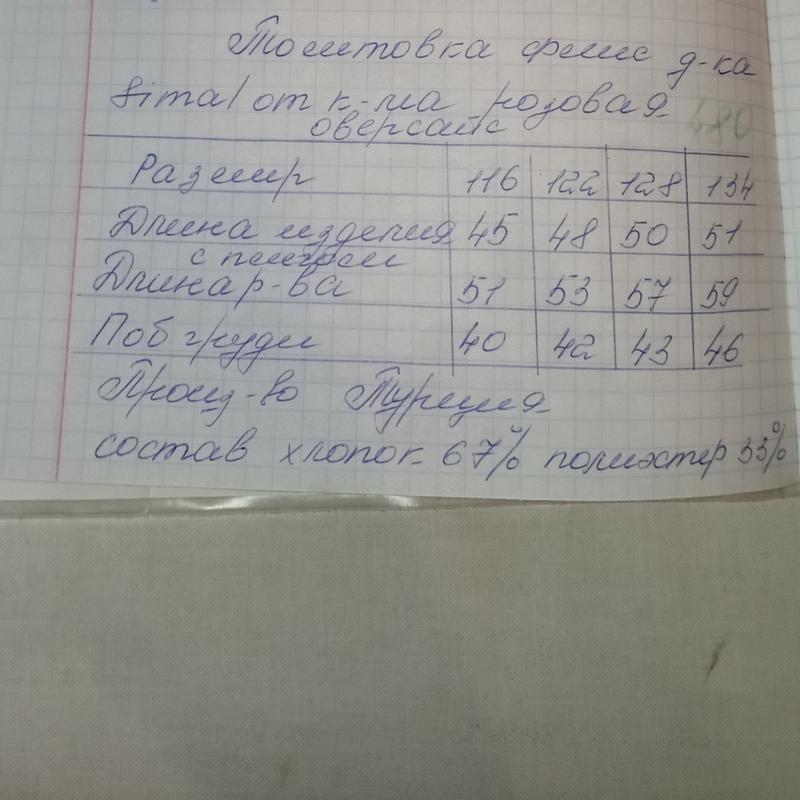 Толстовка флис д-ка
fimal от к-ма розовая 480
оверсайс
Размер 116 122 128 134
Длина изделия 45 48 50 51
с плечом
Длина р-ва 51 53 57 59
П об груди 40 42 43 46
Произ-во Турция
состав хлопок 67% полиэстер 33%